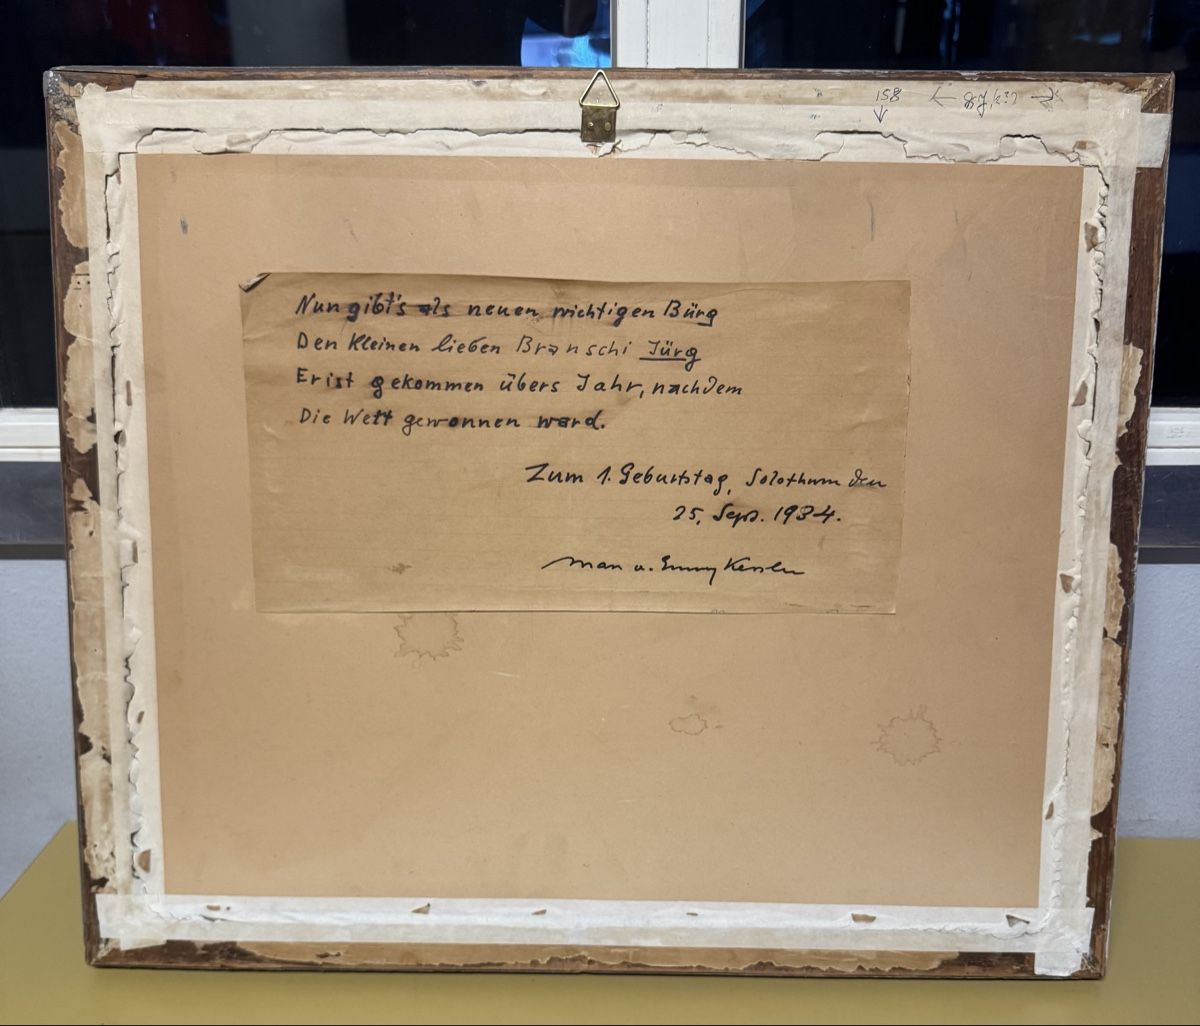 Nun gibt's als neuen wichtigen Bürg
Den Kleinen lieben Branschi Jürg
Er ist gekommen übers Jahr, nachdem
Die Wett gewonnen ward.
Zum 1. Geburtstag, Solothurn den
25. Sept. 1934.
u. Emmy Kessler
158